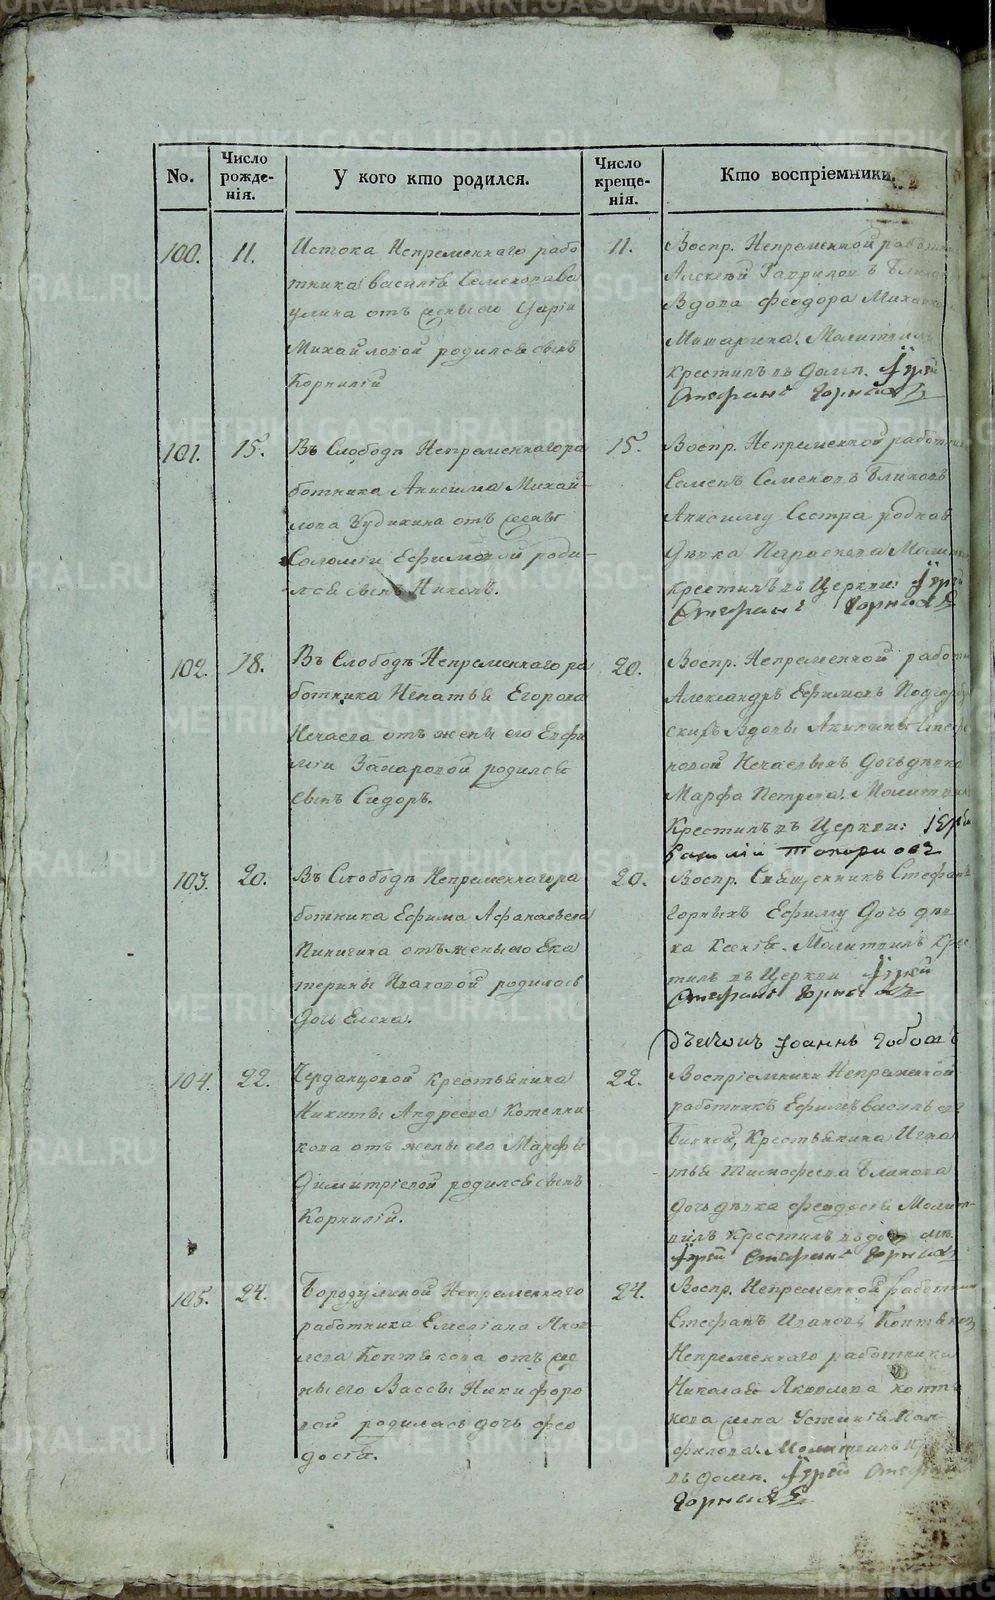 No.
Число рожденія.
У кого кто родился.
Число крещенія.
Кто воспріемники.
100.
11.
Истока Непременнаго рабо
тника Василія Семенова
улина отъ жены его Маріи
Михайловой родился сынъ
Корнилій
11.
Воспр. Непременной работ
Алексѣй Гавриловъ
Вдова Феодора
Мишарина. Молитвил
крестилъ въ домѣ. Іерей
Стефанъ Горныхъ
101.
15.
Въ Слободѣ Непременнаго ра
ботника Анисима Михай-
лова Чудикина отъ жены
Соломіи Ефимовой роди-
лся сынъ Никонъ.
15.
Воспр. Непременной работник
Семенъ Семеновъ Блиновъ
Анисиму Сестра родная
Дѣвка Параскева Молит
крестилъ въ Церкви: Іерей
Стефанъ Горныхъ
102.
18.
Въ Слободѣ Непременнаго ра
ботника Игнатья Егорова
Нечаева отъ жены его Евфи
міи Захаровой родился
сынъ Сидоръ.
20.
Воспр. Непременной работн
Александръ Ефимовъ Подгорбу
скихъ Вдовы Акилины Стеф
новой Нечаевыхъ Дочь дѣвка
Марфа Петрова. Молитвил
Крестилъ въ Церкви: Іерей
Василій Топорковъ
103.
20.
Въ Слободѣ Непременнаго ра
ботника Ефима Афанасьева
Пиничина отъ жены его Ека
терины Ивановой родилась
дочь Елена.
20.
Воспр. Священникъ Стефанъ
Горныхъ Ефиму Дочь дѣв
ка Ксенія. Молитвилъ крес
тилъ въ Церкви Іерей
Стефанъ Горныхъ
дьячокъ Іоаннъ
104.
22.
Черданцовой Крестьянина
Никиты Андреева Котельни
кова отъ жены его Марфы
Димитріевой родился сынъ
Корнилій.
22.
Воспріемники Непременной
работникъ Ефимъ Васильевъ
Крестьянина Игна
тья Тимофеева Блинова
дочь дѣвка Феодосья Молит-
вилъ Крестилъ въ домѣ
Іерей Стефанъ Горныхъ
105.
24.
Бородулиной Непременнаго
работника Емельяна Яков
лева Коптякова отъ же
ны его Вассы Никифоро
вой родилась дочь Фео
досія.
24.
Воспр. Непременной работник
Стефанъ Ивановъ Коптяковъ
Непременнаго работника
Николая Яковлева Коптя
кова жена Устинія Пан-
филова. Молитвилъ кр
въ домѣ. Іерей Стефанъ
Горныхъ
METRIKI.GASO-URAL.RU